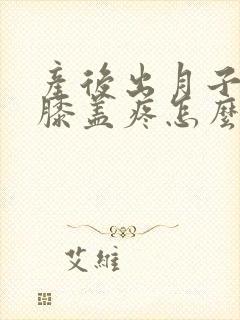 產後出月子
膝蓋疼怎麼
艾維